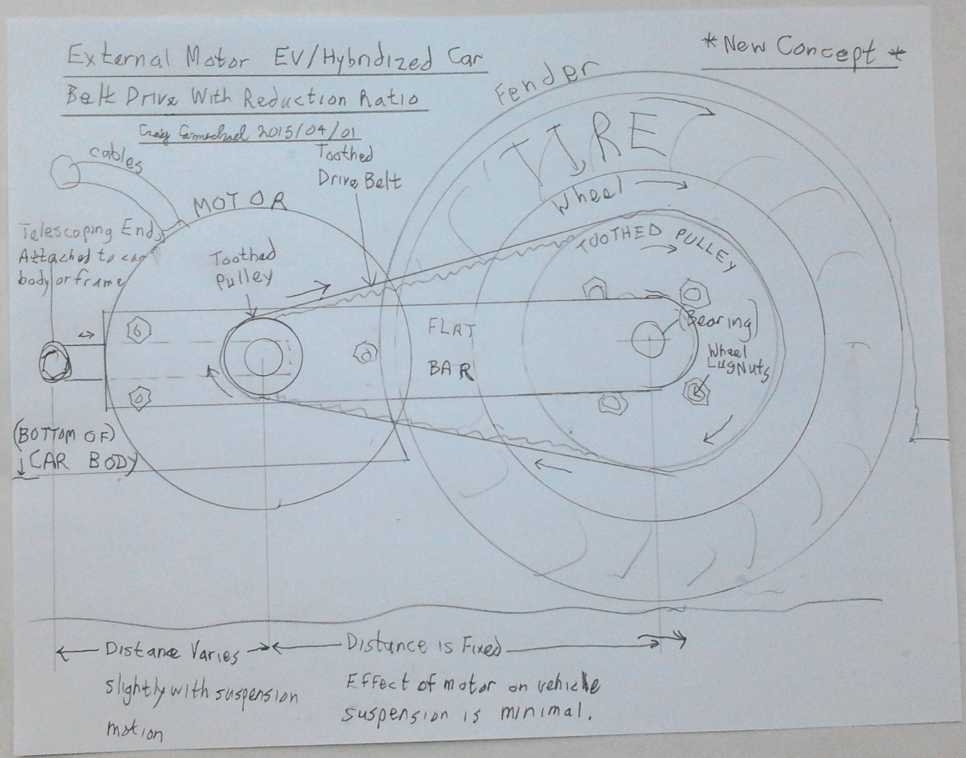 External Motor EV/Hybridized Car
Belt Drive With Reduction Ratio
Craig Carmichael 2015/04/01
* New Concept *
Fender
TIRE
Wheel
cables
MOTOR
Toothed
Drive Belt
Telescoping End,
Attached to car
body or frame
Toothed
Pulley
TOOTHED PULLEY
FLAT
BAR
(Bearing)
Wheel
Lug Nuts
(BOTTOM OF)
CAR BODY
Distance Varies
slightly with suspension
motion
Distance is Fixed
Effect of motor on vehicle
suspension is minimal.